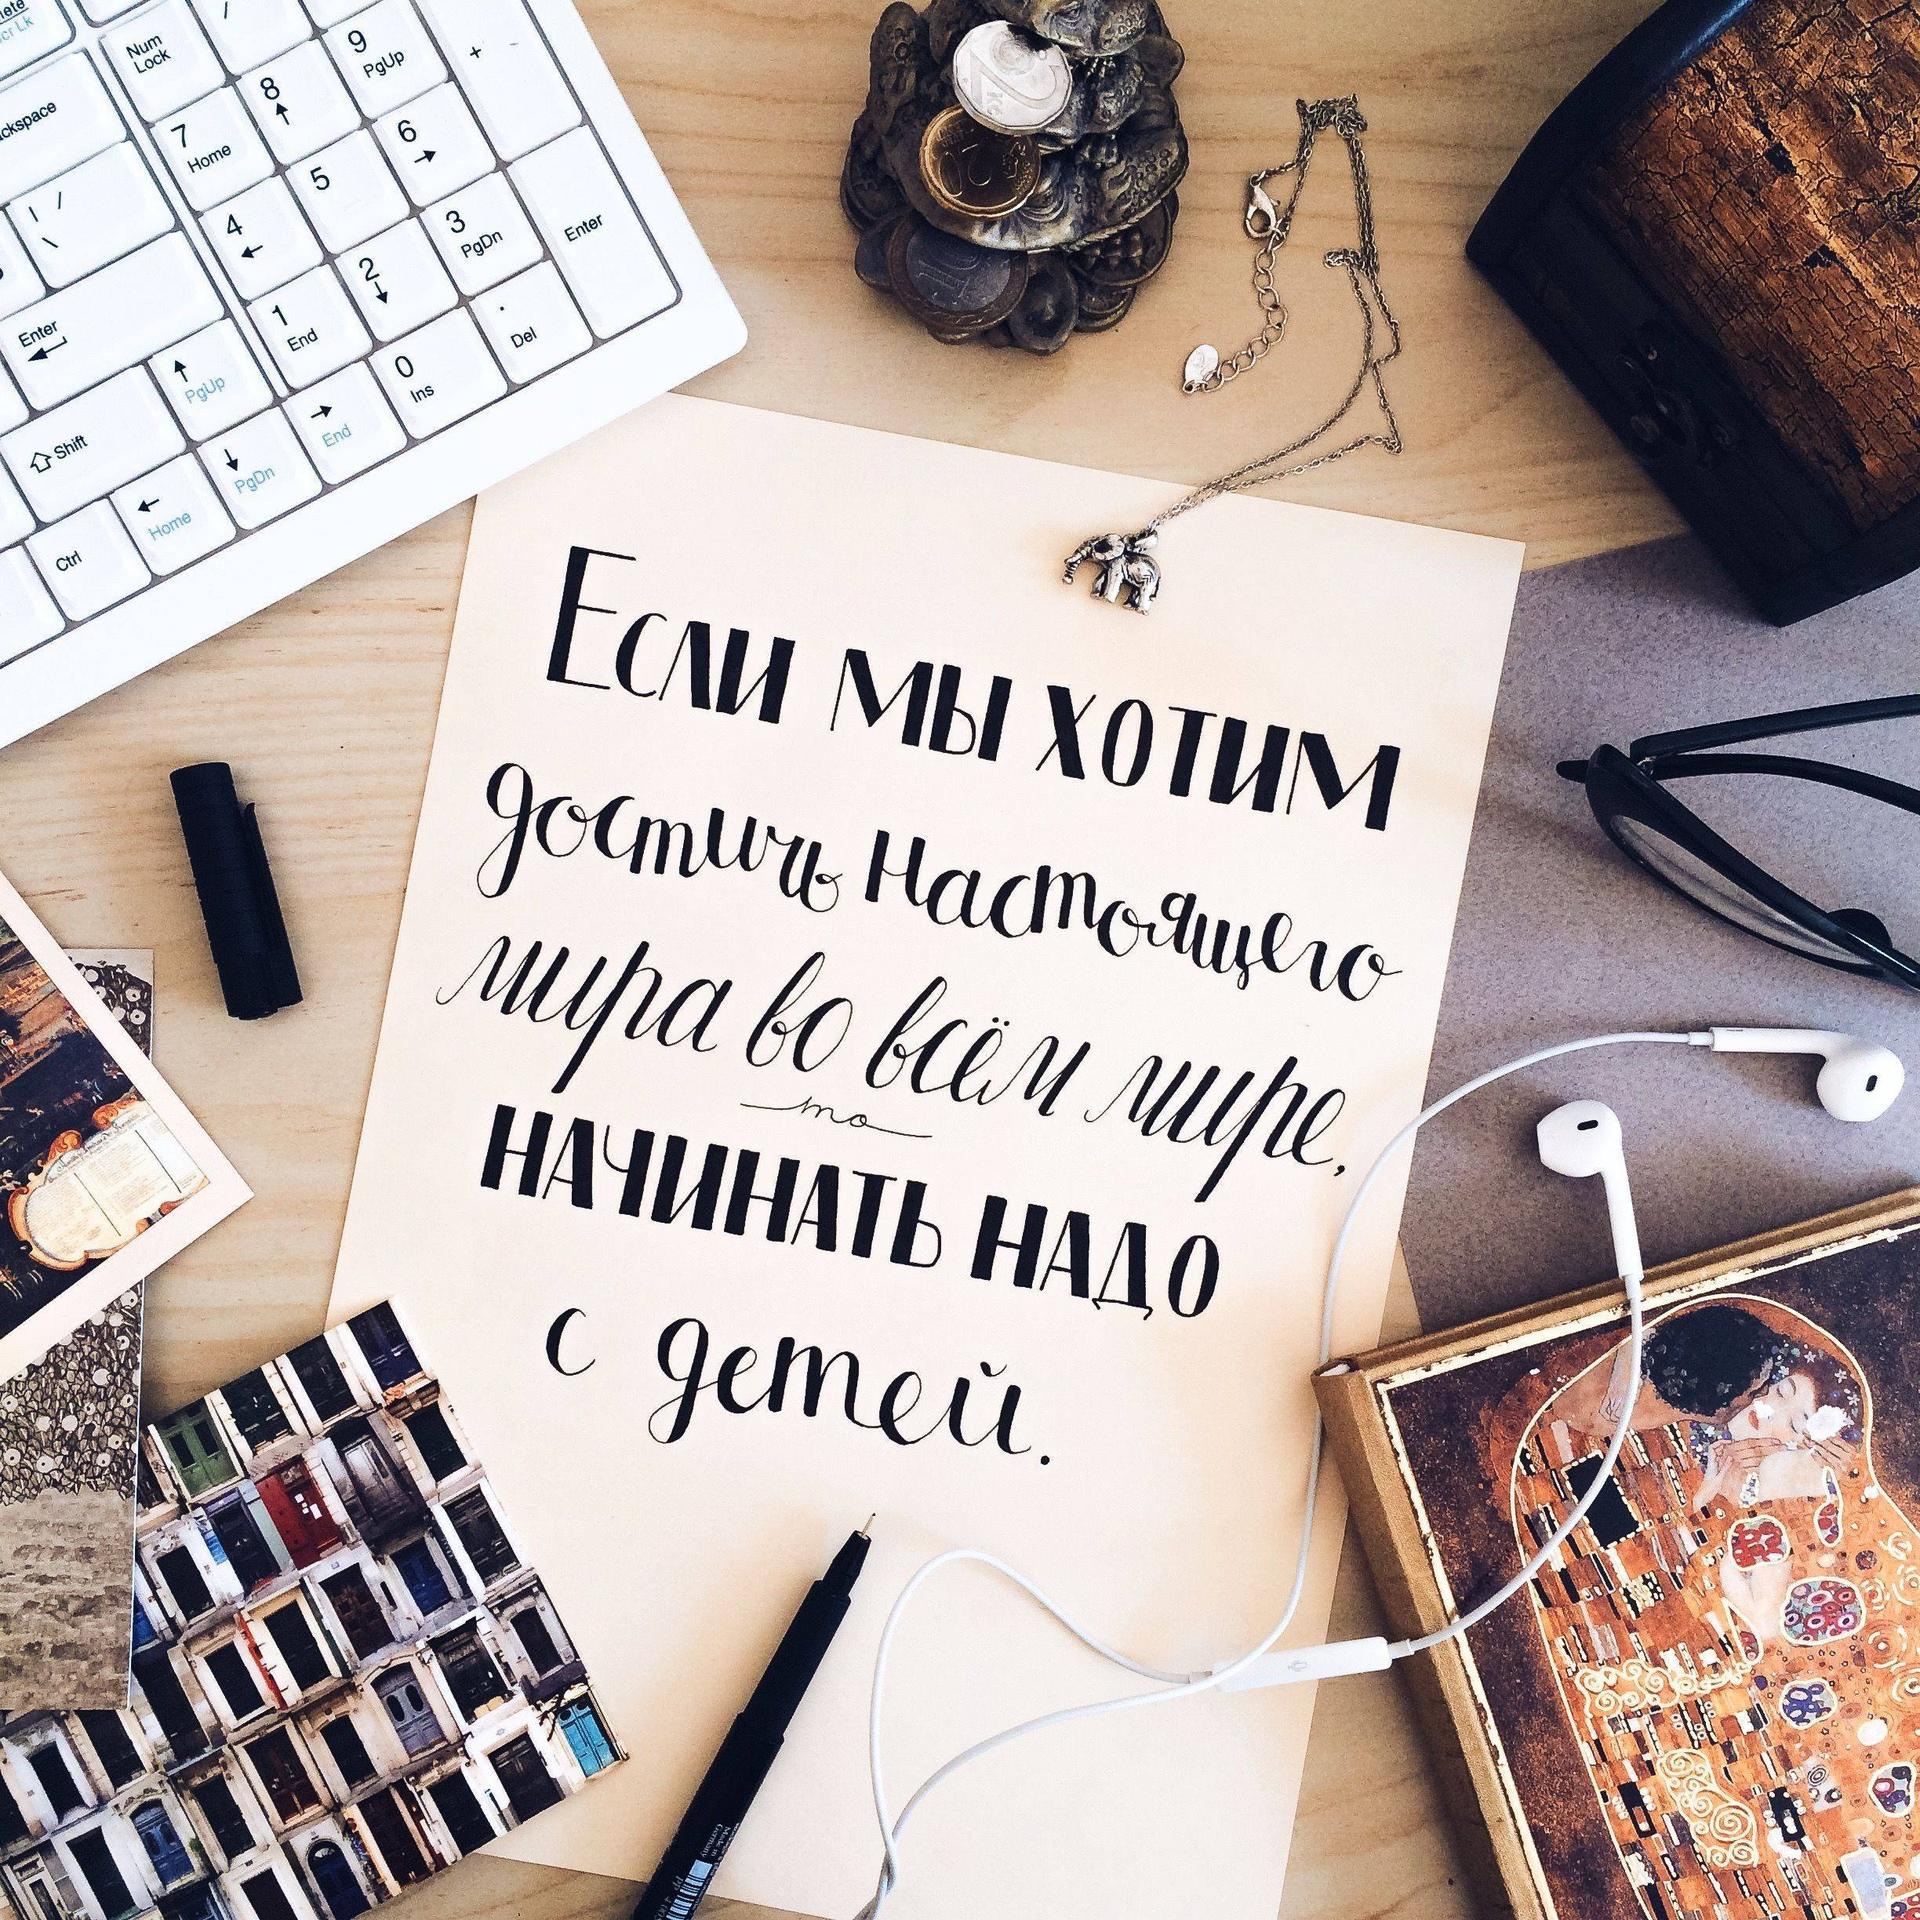 Delete
Scr Lk
Num Lock
/
9 PgUp
+
Backspace
7 Home
8
6
| / \
4
5
3 PgDn
Enter
Enter
1 End
2
. Del
PgUp
0 Ins
Shift
PgDn
End
Ctrl
Home
2
20
10
Если мы хотим
достичь настоящего
мира во всём мире,
то
начинать надо
с детей.
Made in Germany